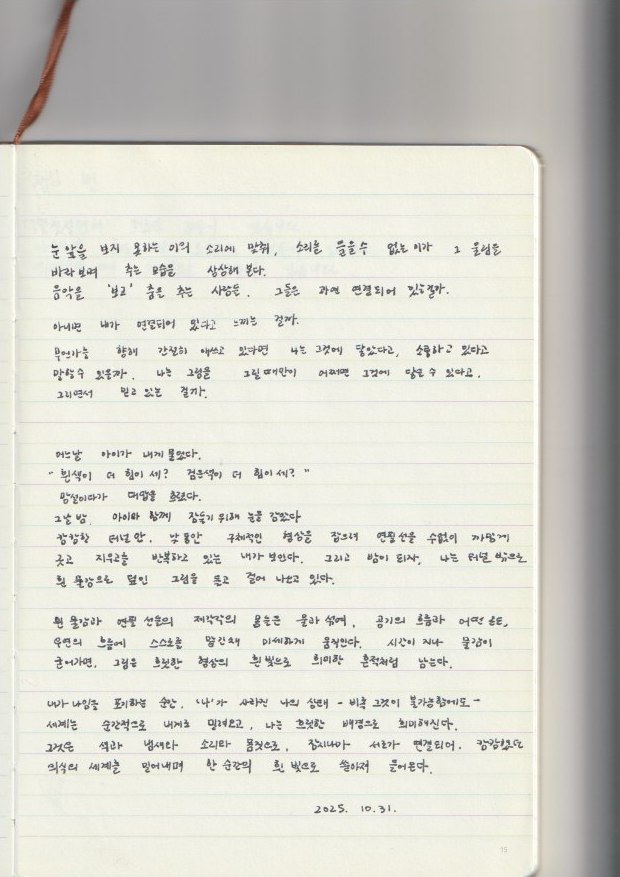 눈 앞을 보지 못하는 이의 소리에 맞춰, 소리를 들을 수 없는 이가 그 울림을
바라보며 추는 모습을 상상해 본다.
음악을 '보고' 춤을 추는 사람들. 그들은 과연 연결되어 있는걸까.
아니면 내가 연결되어 있다고 느끼는 걸까.
무언가를 향해 간절히 애쓰고 있다면 나는 그것에 닿았다고, 소통하고 있다고
말할 수 있을까. 나는 그림을 그릴 때만이 어쩌면 그것에 닿을 수 있다고,
그리면서 믿고 있는 걸까.
어느날 아이가 내게 물었다.
"흰색이 더 힘이 세? 검은색이 더 힘이 세?"
망설이다가 대답을 흐렸다.
그날 밤. 아이와 함께 잠들기 위해 눈을 감았다
캄캄한 터널 안. 낮 동안 구체적인 형상을 잡으려 연필선을 수없이 까맣게
긋고 지우고를 반복하고 있는 내가 보인다. 그리고 밤이 되자, 나는 터널 밖으로
흰 물감으로 덮인 그림을 들고 걸어 나오고 있다.
흰 물감과 연필 선들의 제각각의 몸들은 물과 섞여, 공기의 흐름과 어떤 온도,
우연의 흐름에 스스로를 맡긴채 미세하게 움직인다. 시간이 지나 물감이
굳어가면, 그림은 흐릿한 형상의 흰 빛으로 희미한 흔적처럼 남는다.
내가 나임을 포기하는 순간, '나'가 사라진 나의 상태 - 비록 그것이 불가능함에도 -
세계는 순간적으로 내게로 밀려오고, 나는 흐릿한 배경으로 희미해진다.
그것은 색과 냄새와 소리와 몸짓으로, 잠시나마 서로가 연결되어, 캄캄했던
의식의 세계를 밀어내며 한 순간의 흰 빛으로 쏟아져 들어온다.
2025. 10.31.
15